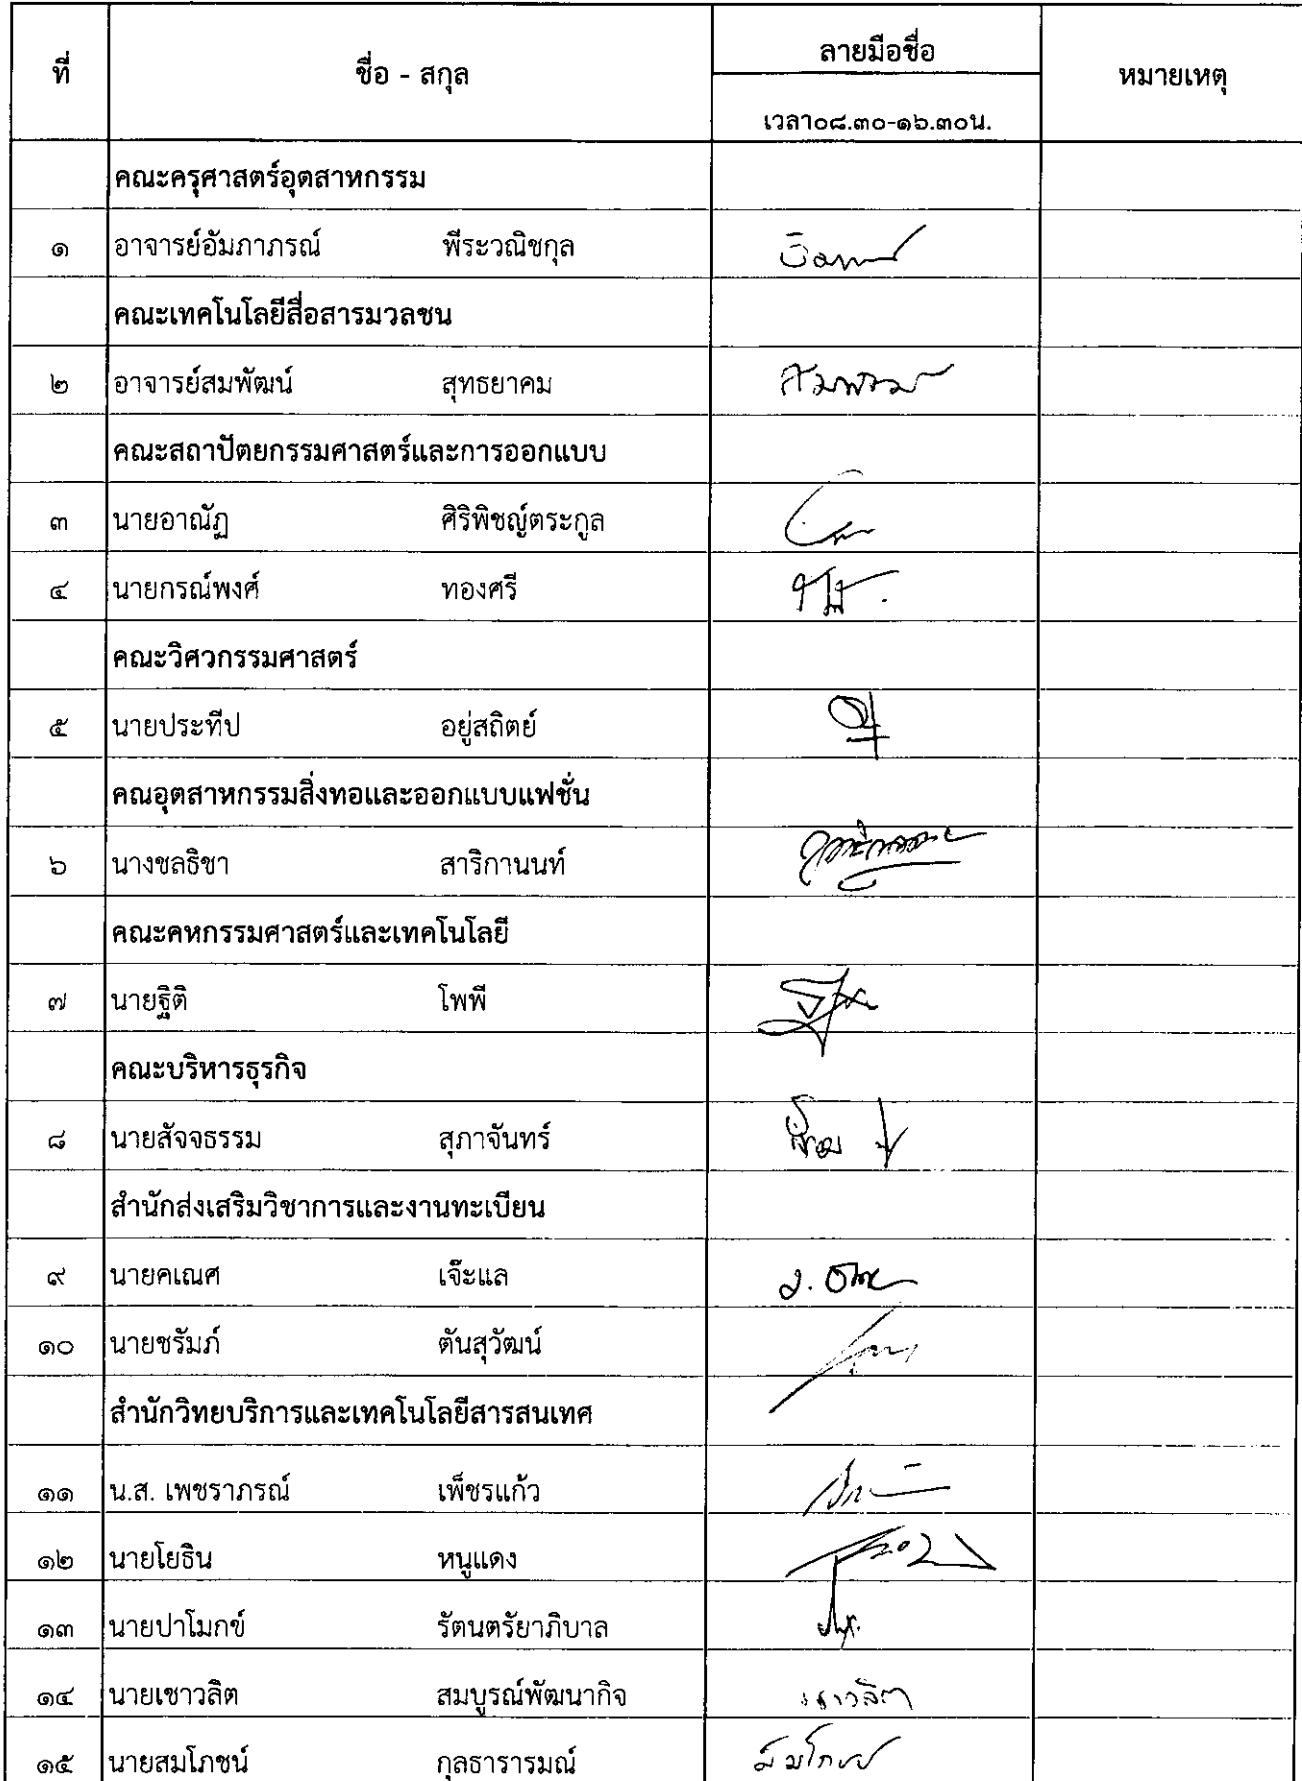 ที่ ชื่อ - สกุล ลายมือชื่อ หมายเหตุ
เวลา๐๘.๓๐-๑๖.๓๐น.
คณะครุศาสตร์อุตสาหกรรม
๑ อาจารย์อัมภาภรณ์ พีระวณิชกุล
คณะเทคโนโลยีสื่อสารมวลชน
๒ อาจารย์สมพัฒน์ สุทธยาคม
คณะสถาปัตยกรรมศาสตร์และการออกแบบ
๓ นายอาณัฏ ศิริพิชญ์ตระกูล
๔ นายกรณ์พงศ์ ทองศรี
คณะวิศวกรรมศาสตร์
๕ นายประทีป อยู่สถิตย์
คณอุตสาหกรรมสิ่งทอและออกแบบแฟชั่น
๖ นางชลธิชา สาริกานนท์
คณะคหกรรมศาสตร์และเทคโนโลยี
๗ นายฐิติ โพพี
คณะบริหารธุรกิจ
๘ นายสัจจธรรม สุภาจันทร์
สำนักส่งเสริมวิชาการและงานทะเบียน
๙ นายคเณศ เจ๊ะแล
๑๐ นายชรัมภ์ ตันสุวัฒน์
สำนักวิทยบริการและเทคโนโลยีสารสนเทศ
๑๑ น.ส. เพชราภรณ์ เพ็ชรแก้ว
๑๒ นายโยธิน หนูแดง
๑๓ นายปาโมกข์ รัตนตรัยาภิบาล
๑๔ นายเชาวลิต สมบูรณ์พัฒนากิจ เชาวลิต
๑๕ นายสมโภชน์ กุลธารารมณ์